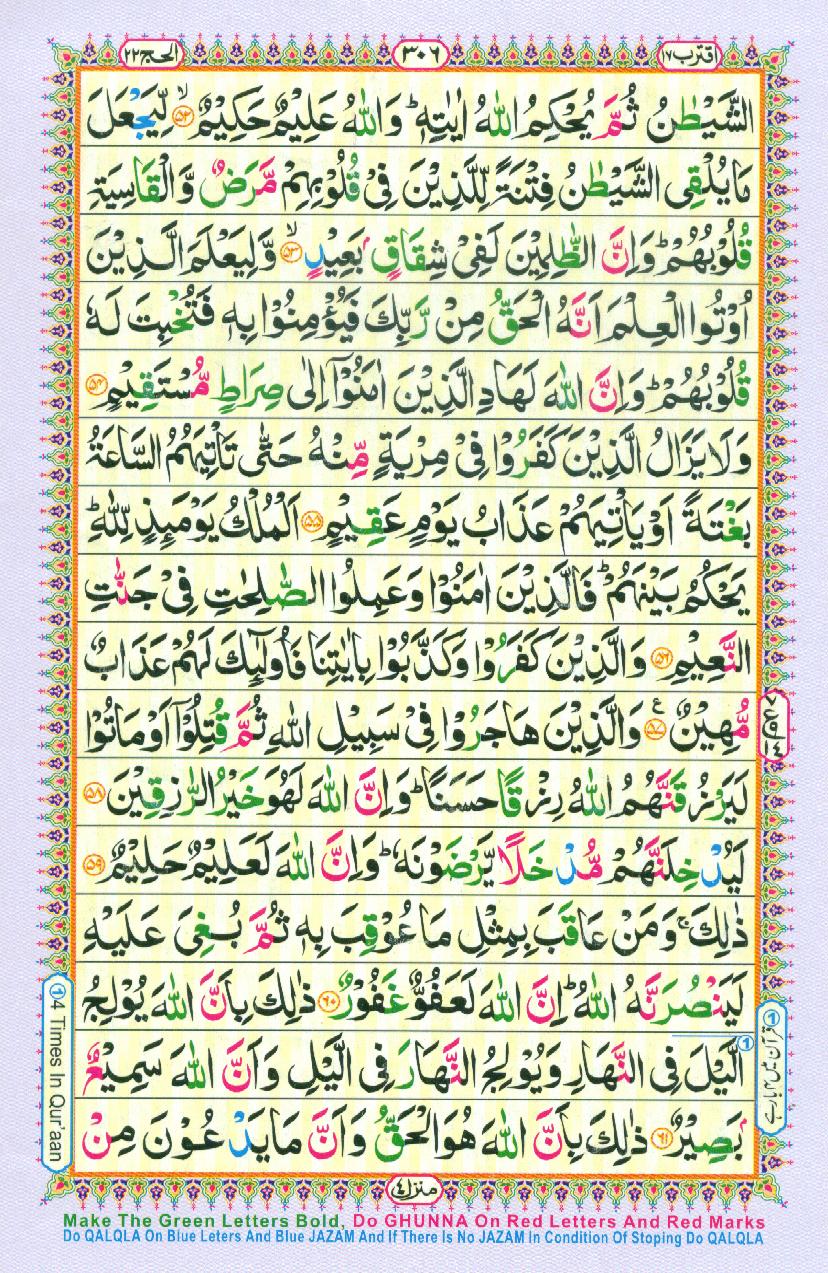 اقترب ١٧
٣٠٦
الحج ٢٢
الشَّيْطٰنُ ثُمَّ يُحْكِمُ اللّٰهُ اٰيٰتِهٖ ؕ وَاللّٰهُ عَلِيْمٌ حَكِيْمٌ ۙ﴿۵۲﴾ لِّيَجْعَلَ
مَا يُلْقِى الشَّيْطٰنُ فِتْنَةً لِّلَّذِيْنَ فِىْ قُلُوْبِهِمْ مَّرَضٌ وَّالْقَاسِيَةِ
قُلُوْبُهُمْ ؕ وَاِنَّ الظّٰلِمِيْنَ لَفِىْ شِقَاقٍۭ بَعِيْدٍ ۙ﴿۵۳﴾ وَّلِيَعْلَمَ الَّذِيْنَ
اُوْتُوا الْعِلْمَ اَنَّهُ الْحَقُّ مِنْ رَّبِّكَ فَيُؤْمِنُوْا بِهٖ فَتُخْبِتَ لَهٗ
قُلُوْبُهُمْ ؕ وَاِنَّ اللّٰهَ لَهَادِ الَّذِيْنَ اٰمَنُوْۤا اِلٰى صِرَاطٍ مُّسْتَقِيْمٍ ﴿۵۴﴾
وَلَا يَزَالُ الَّذِيْنَ كَفَرُوْا فِىْ مِرْيَةٍ مِّنْهُ حَتّٰى تَاْتِيَهُمُ السَّاعَةُ
بَغْتَةً اَوْ يَاْتِيَهُمْ عَذَابُ يَوْمٍ عَقِيْمٍ ﴿۵۵﴾ اَلْمُلْكُ يَوْمَئِذٍ لِّلّٰهِ ؕ
يَحْكُمُ بَيْنَهُمْ ؕ فَالَّذِيْنَ اٰمَنُوْا وَعَمِلُوا الصّٰلِحٰتِ فِىْ جَنّٰتِ
النَّعِيْمِ ﴿۵۶﴾ وَالَّذِيْنَ كَفَرُوْا وَكَذَّبُوْا بِاٰيٰتِنَا فَاُولٰٓئِكَ لَهُمْ عَذَابٌ
مُّهِيْنٌ ﴿۵۷﴾ ع وَالَّذِيْنَ هَاجَرُوْا فِىْ سَبِيْلِ اللّٰهِ ثُمَّ قُتِلُوْۤا اَوْ مَاتُوْا
لَيَرْزُقَنَّهُمُ اللّٰهُ رِزْقًا حَسَنًا ؕ وَاِنَّ اللّٰهَ لَهُوَ خَيْرُ الرّٰزِقِيْنَ ﴿۵۸﴾
لَيُدْخِلَنَّهُمْ مُّدْخَلًا يَّرْضَوْنَهٗ ؕ وَاِنَّ اللّٰهَ لَعَلِيْمٌ حَلِيْمٌ ﴿۵۹﴾
ذٰلِكَ ۚ وَمَنْ عَاقَبَ بِمِثْلِ مَا عُوْقِبَ بِهٖ ثُمَّ بُغِىَ عَلَيْهِ
لَيَنْصُرَنَّهُ اللّٰهُ ؕ اِنَّ اللّٰهَ لَعَفُوٌّ غَفُوْرٌ ﴿۶۰﴾ ذٰلِكَ بِاَنَّ اللّٰهَ يُوْلِجُ
1 الَّيْلَ فِى النَّهَارِ وَيُوْلِجُ النَّهَارَ فِى الَّيْلِ وَاَنَّ اللّٰهَ سَمِيْعٌۢ
بَصِيْرٌ ﴿۶۱﴾ ذٰلِكَ بِاَنَّ اللّٰهَ هُوَ الْحَقُّ وَاَنَّ مَا يَدْعُوْنَ مِنْ
1 4 Times In Qur'aan
منزل ٤
Make The Green Letters Bold, Do GHUNNA On Red Letters And Red Marks
Do QALQLA On Blue Leters And Blue JAZAM And If There Is No JAZAM In Condition Of Stoping Do QALQLA